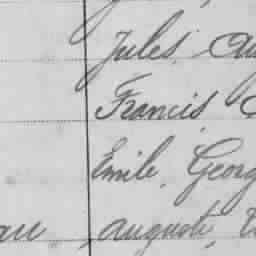 Jules,
Francis,
Emile, Georg
auguste,